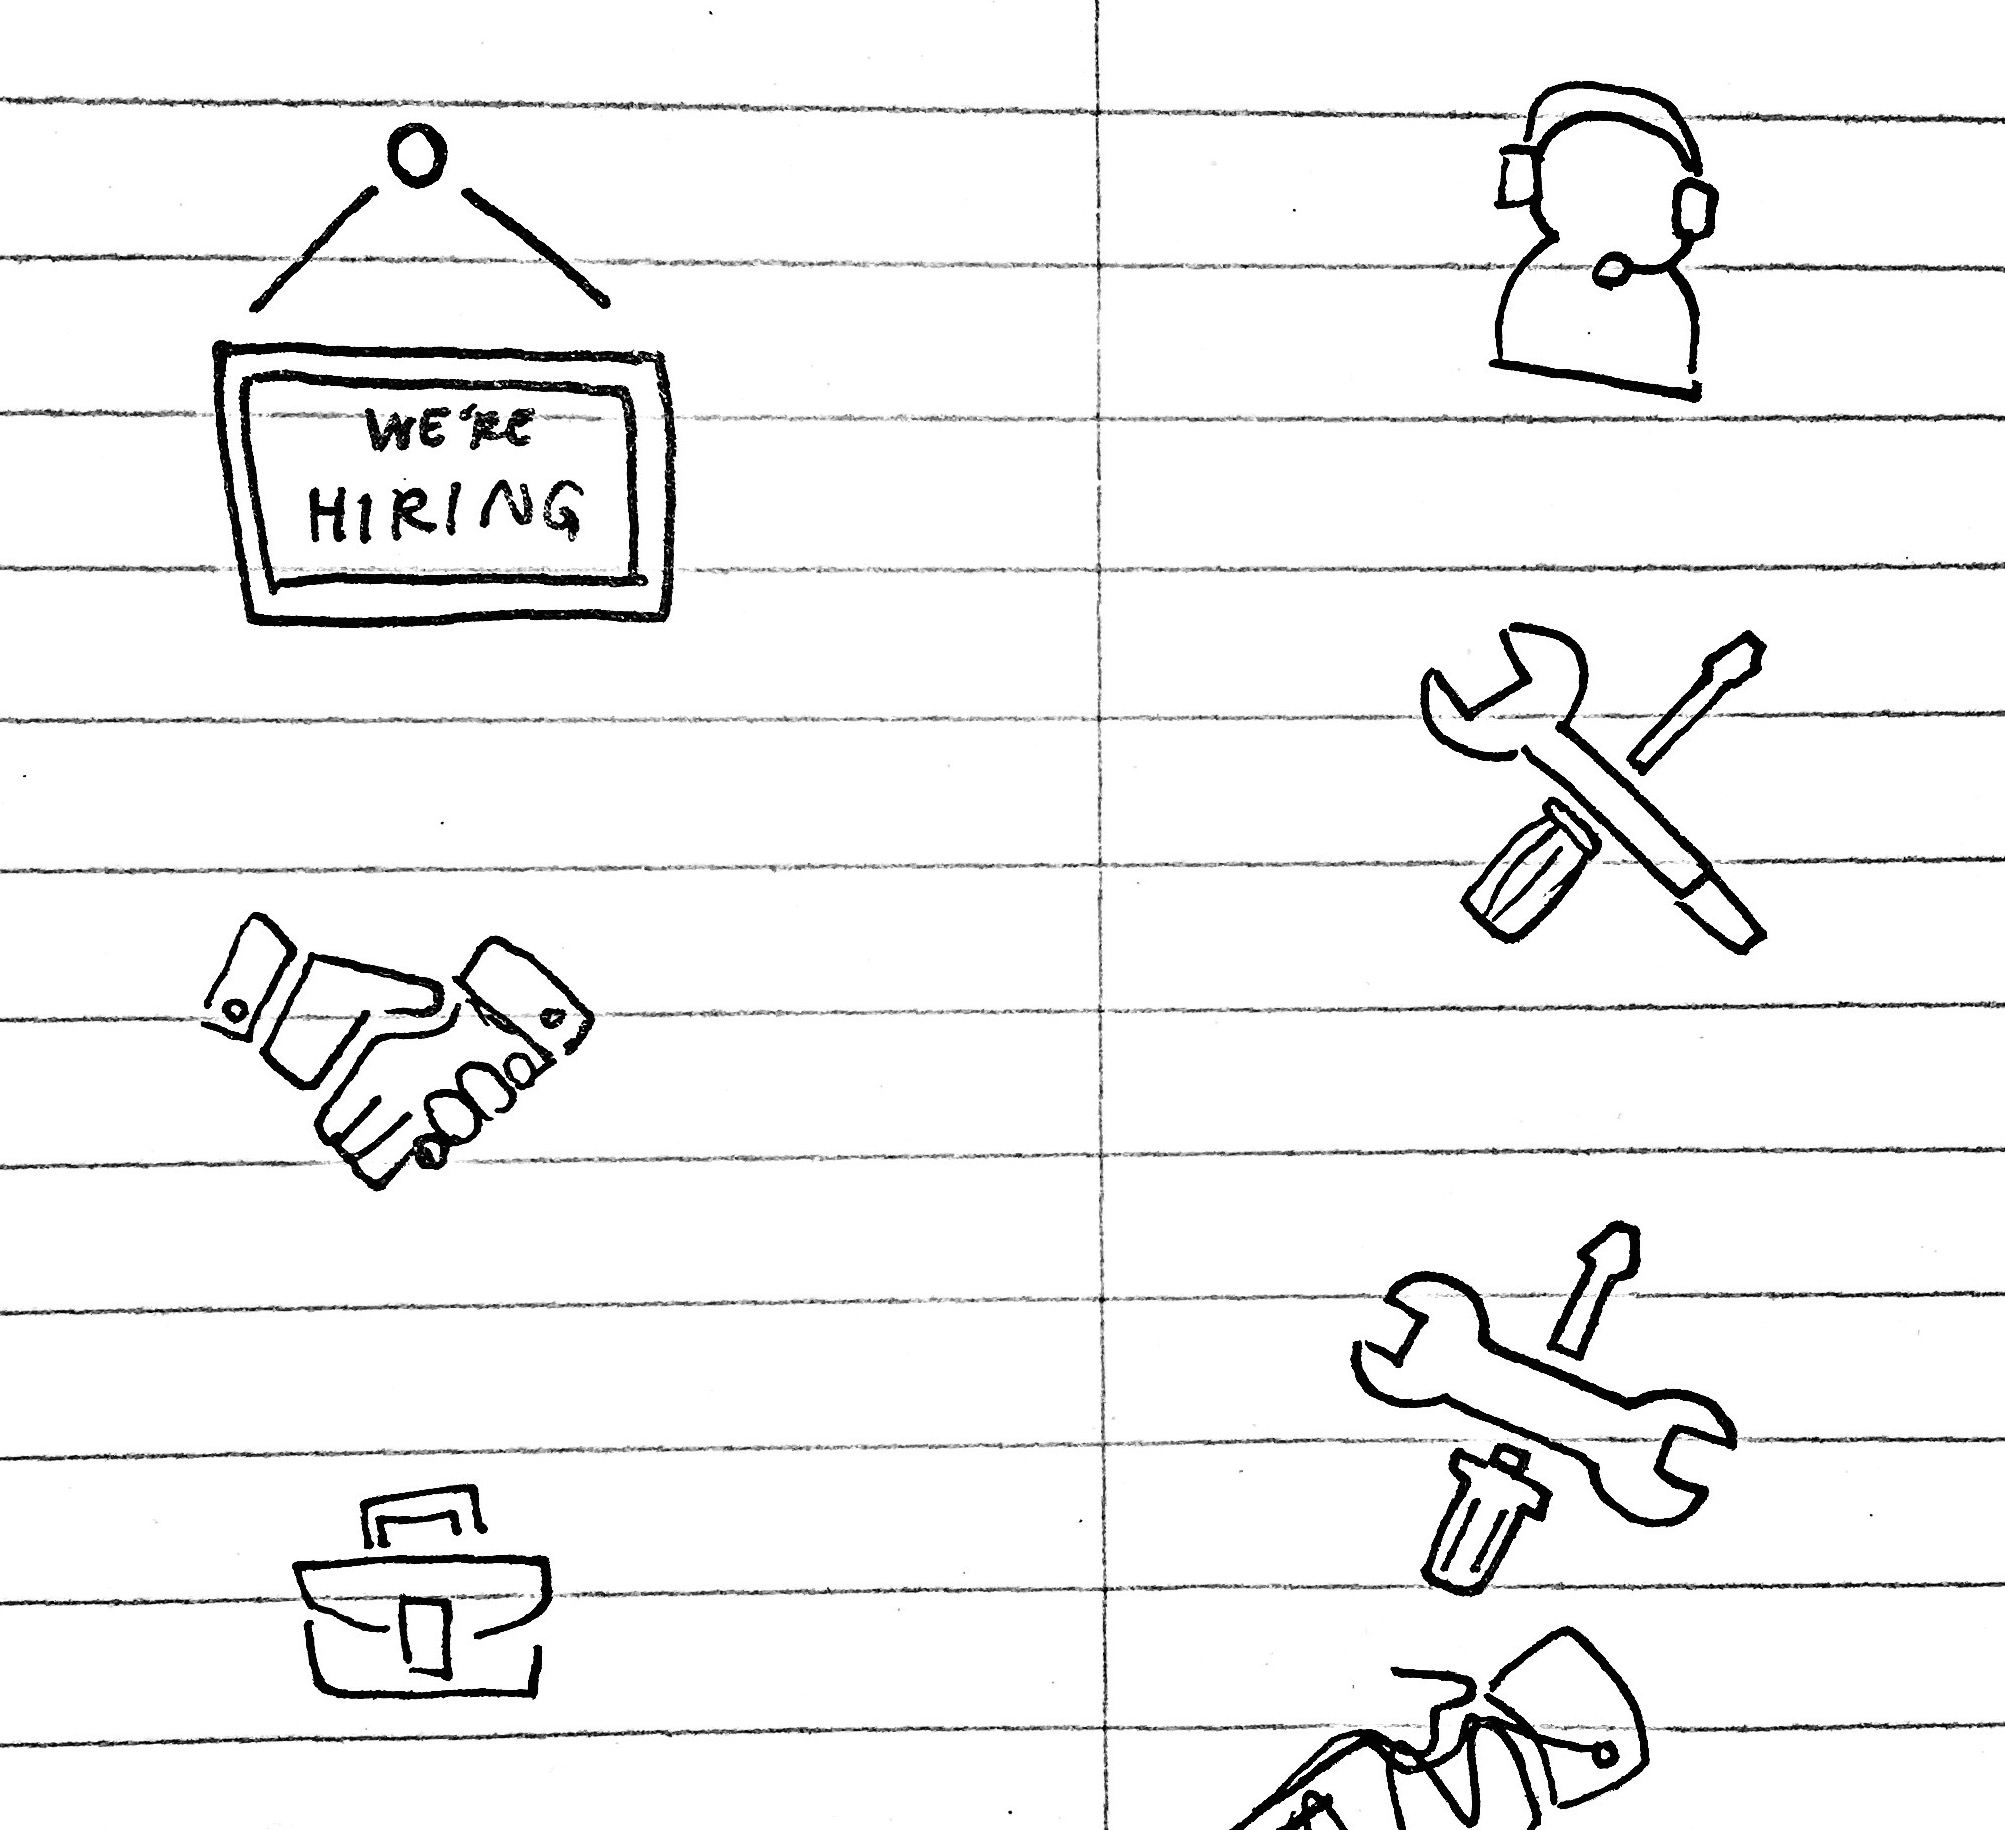 WE'RE
HIRING